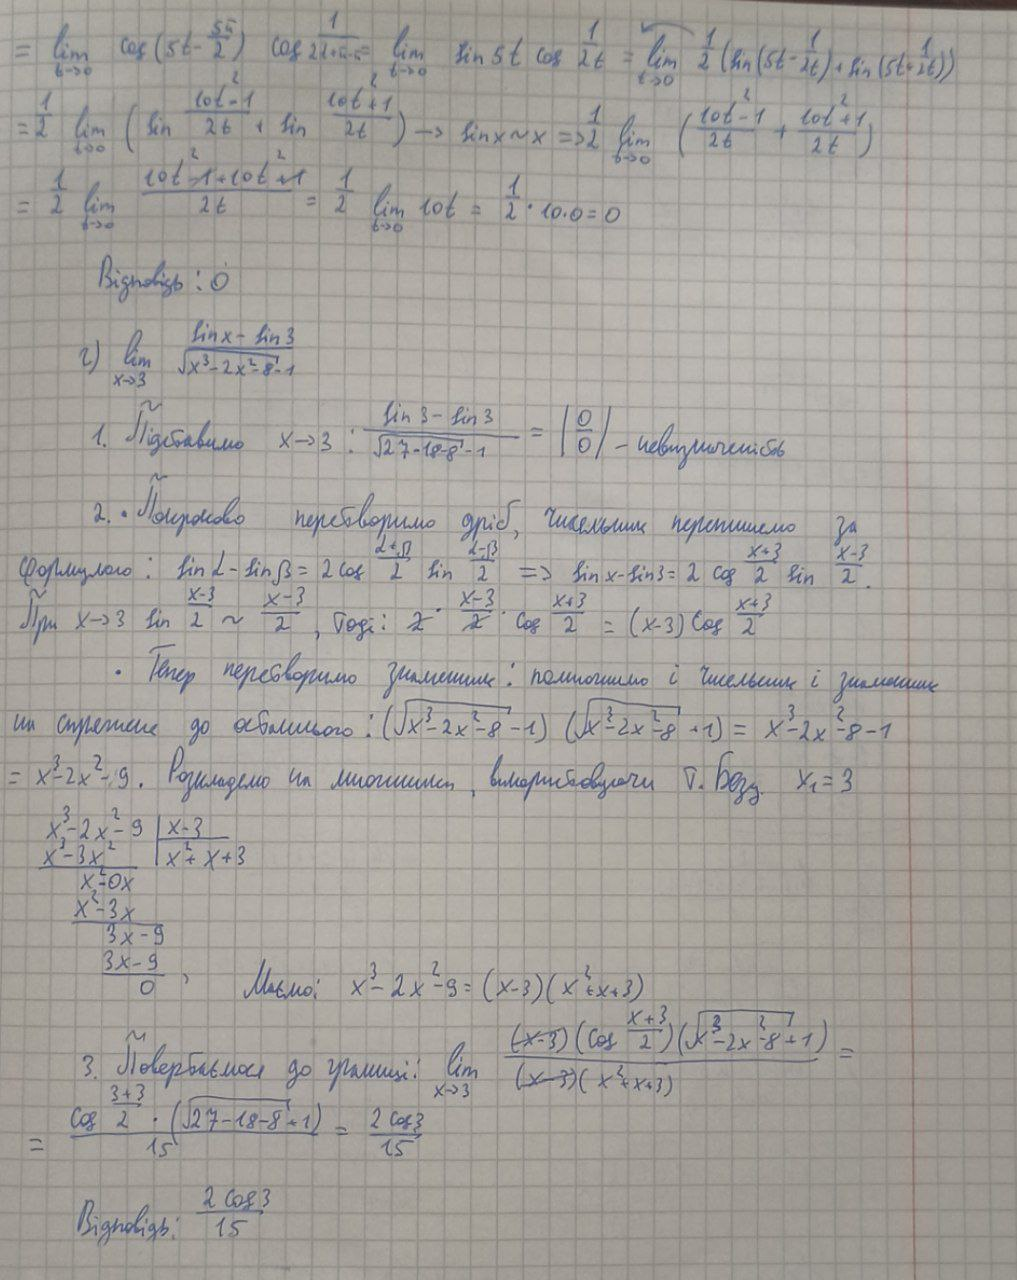 = lim t→0 cos(5t - 5π/2) cos 1/(2t+π-π) = lim t→0 sin 5t cos 1/2t = lim t→0 1/2 (sin(5t - 1/2t) + sin(5t + 1/2t))
= 1/2 lim t→0 (sin (10t² - 1)/2t + sin (10t² + 1)/2t) → sin x ~ x => 1/2 lim t→0 ((10t² - 1)/2t + (10t² + 1)/2t)
= 1/2 lim t→0 (10t² - 1 + 10t² + 1)/2t = 1/2 lim t→0 10t = 1/2 · 10·0 = 0
Відповідь: 0
г) lim x→3 (sin x - sin 3)/(√(x³-2x²-8) - 1)
1. Підставимо x→3 : (sin 3 - sin 3)/(√(27-18-8) - 1) = |0/0| - невизначеність
2. • Покроково перетворимо дріб, чисельник перепишемо за
формулою: sin α - sin β = 2 cos (α+β)/2 sin (α-β)/2 => sin x - sin 3 = 2 cos (x+3)/2 sin (x-3)/2.
При x→3 sin (x-3)/2 ~ (x-3)/2, тоді: 2 · (x-3)/2 · cos (x+3)/2 = (x-3) cos (x+3)/2
• Тепер перетворимо знаменник: помножимо і чисельник і знаменник
на спряжене до останнього: (√(x³-2x²-8) - 1) (√(x³-2x²-8) + 1) = x³-2x²-8-1
= x³-2x²-9. Розкладемо на множники, використовуючи т. Безу. x₁ = 3
x³-2x²-9 | x-3
x³-3x² | x²+x+3
x²-0x
x²-3x
3x-9
3x-9
0 , Маємо: x³-2x²-9 = (x-3)(x²+x+3)
3. Повертаємося до границі: lim x→3 (x-3)(cos (x+3)/2)(√(x³-2x²-8) + 1)/((x-3)(x²+x+3)) =
= cos (3+3)/2 · (√(27-18-8) + 1)/15 = 2 cos 3/15
Відповідь: 2 cos 3/15